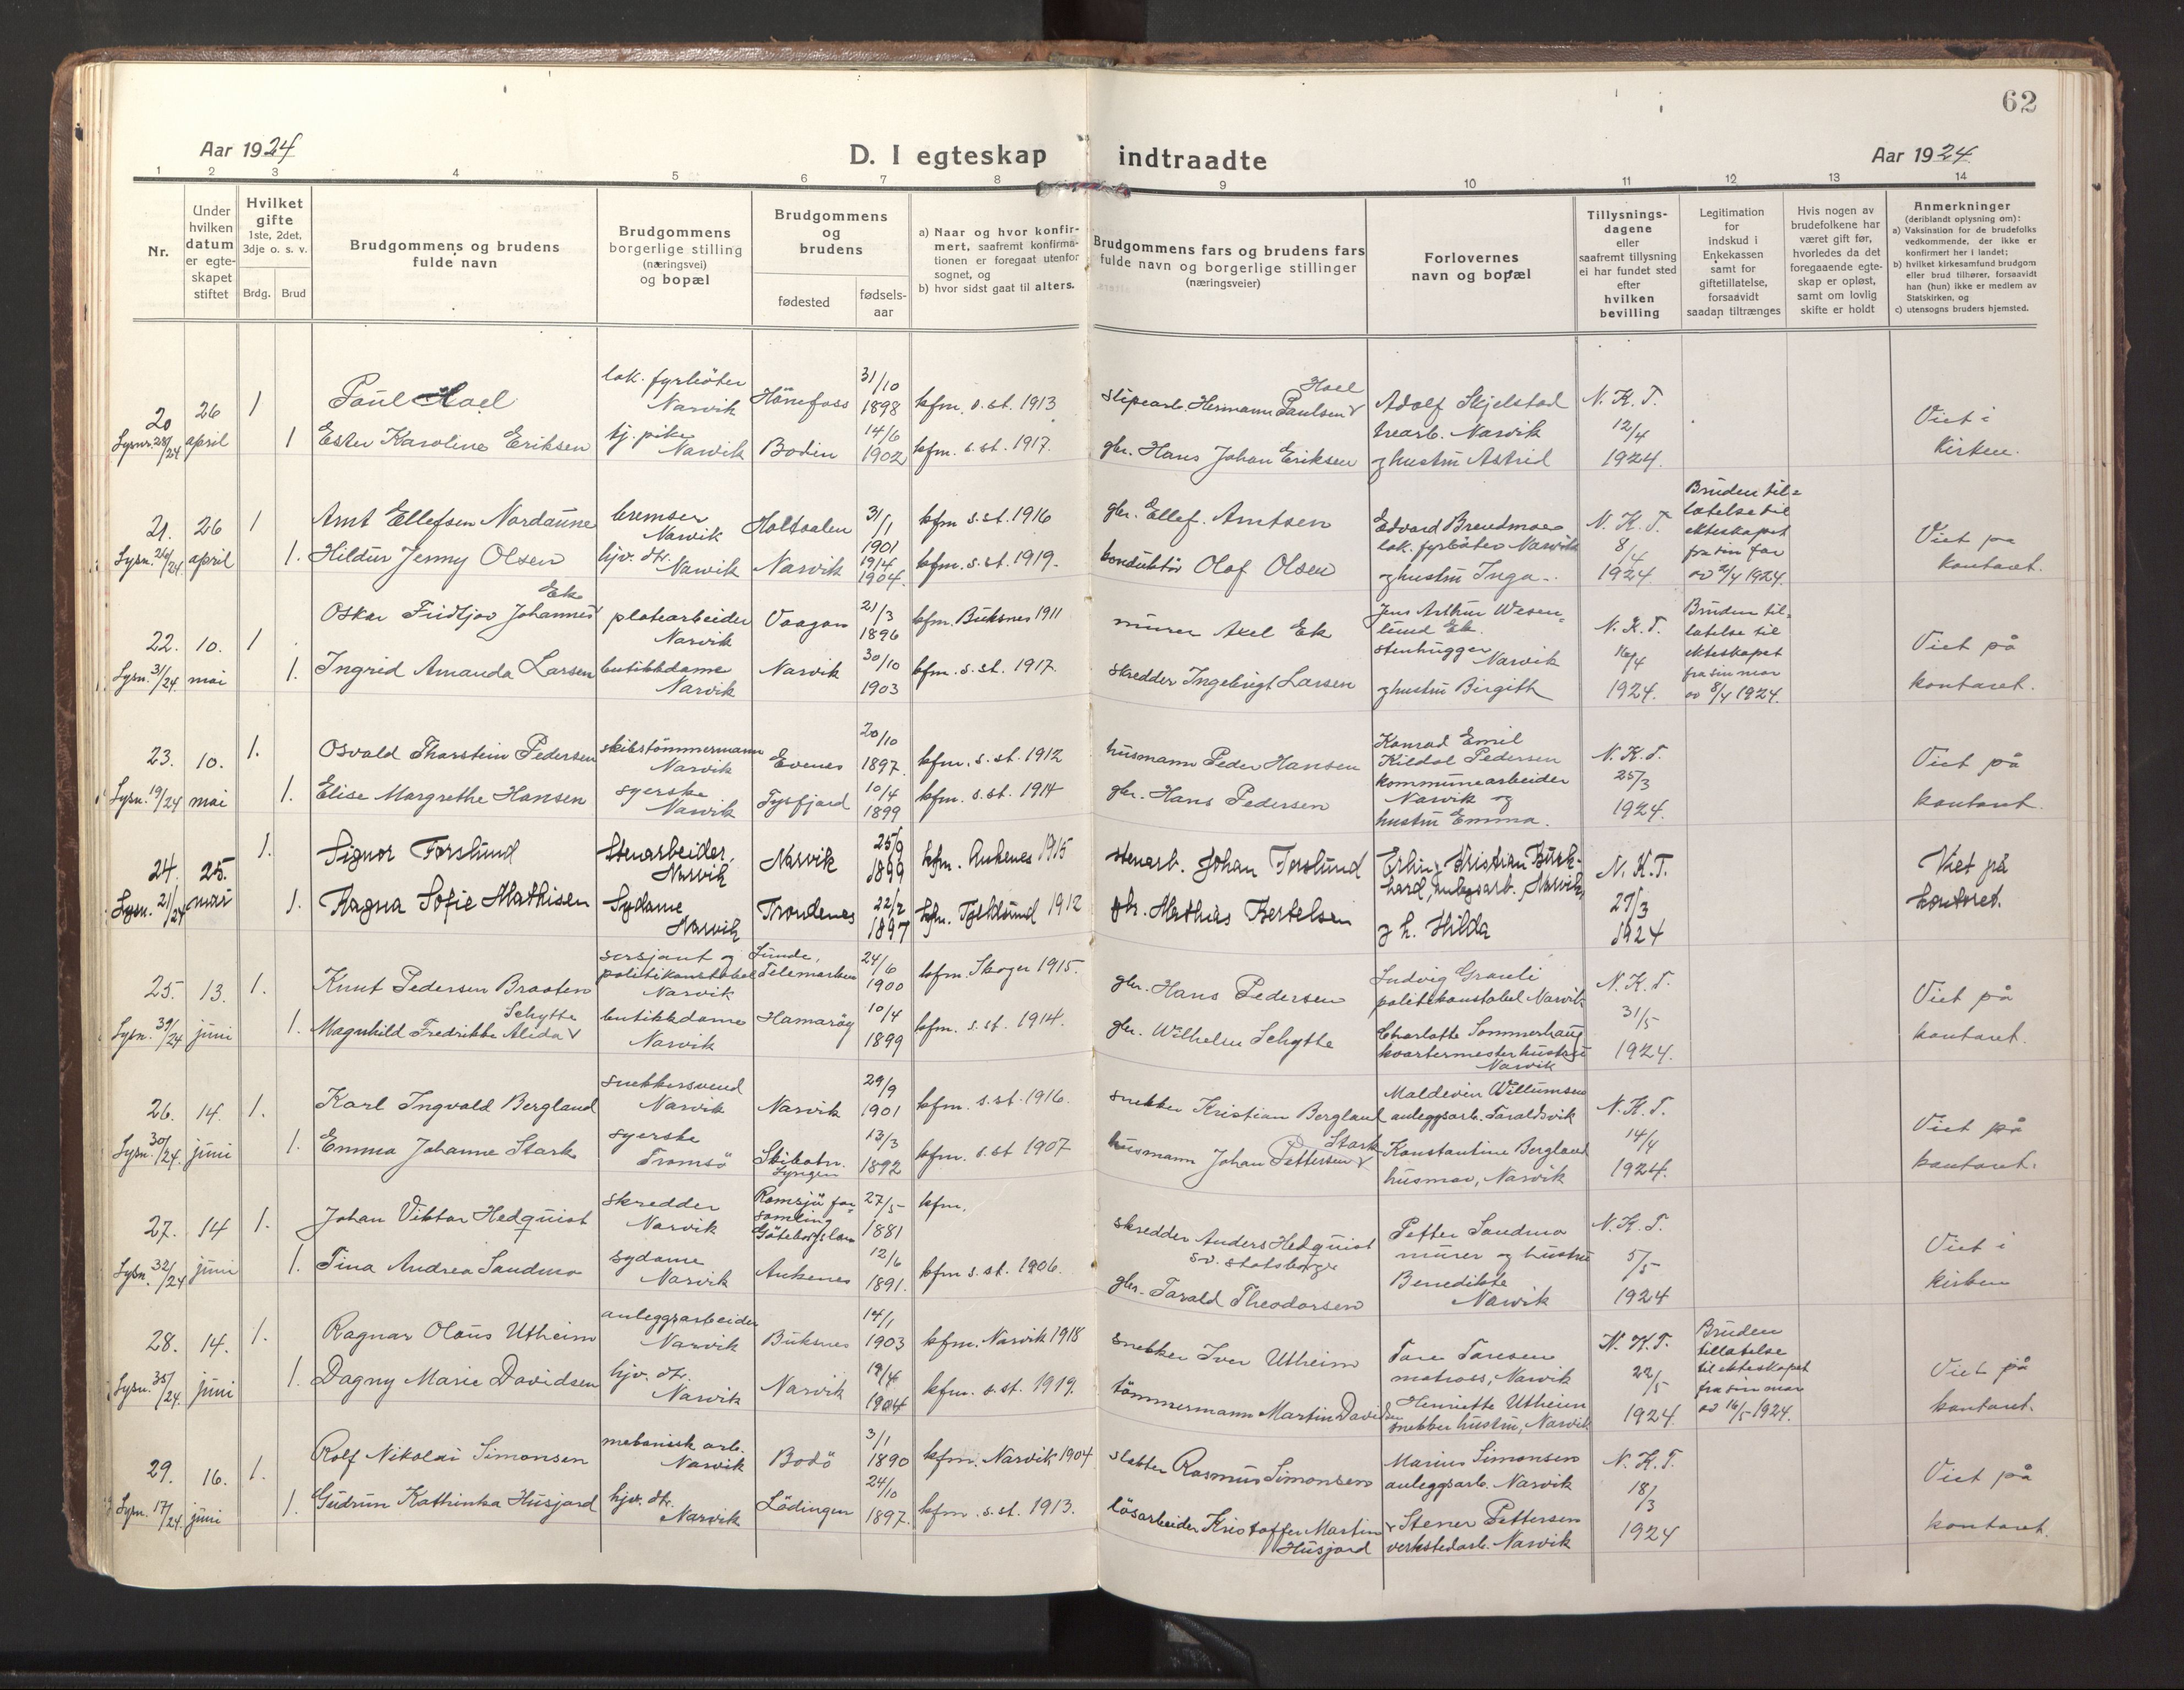 62
Aar 1924
D. I egteskap indtraadte
Aar 1924
1 2 3 4 5 6 7 8 9 10 11 12 13 14
Nr.
Under hvilken datum er egteskapet stiftet
Hvilket gifte
1ste, 2det, 3dje o. s. v.
Brdg. Brud
Brudgommens og brudens fulde navn
Brudgommens borgerlige stilling (næringsvei) og bopæl
Brudgommens og brudens
fødested
fødsels-aar
a) Naar og hvor konfirmert, saafremt konfirmationen er foregaat utenfor sognet, og
b) hvor sidst gaat til alters.
Brudgommens fars og brudens fars fulde navn og borgerlige stillinger (næringsveier)
Forlovernes navn og bopæl
Tillysningsdagene eller saafremt tillysning ei har fundet sted efter hvilken bevilling
Legitimation for indskud i Enkekassen samt for giftetillatelse, forsaavidt saadan tiltrænges
Hvis nogen av brudefolkene har været gift før, hvorledes da det foregaaende egteskap er opløst, samt om lovlig skifte er holdt
Anmerkninger
(deriblandt oplysning om):
a) Vaksination for de brudefolks vedkommende, der ikke er konfirmert her i landet;
b) hvilket kirkesamfund brudgom eller brud tilhører, forsaavidt han (hun) ikke er medlem av Statskirken, og
c) utensogns bruders hjemsted.
20 26 1 Paul Hoel lok. fyrbøter Narvik Hönefoss 31/10 1898 kfm. s. st. 1913 slipearb. Hermann Paulsen Hoel Adolf Skjelstad N. K. T.
Lysn. 28/24 april 1 Ester Karoline Eriksen tj. pike Narvik Bodin 14/6 1902 kfm. s. st. 1917. gbr. Hans Johan Eriksen trearb. Narvik og hustru Astrid 12/4 1924. Viet i kirken.
21. 26 1 Arnt Ellefsen Nordaune bremser Narvik Holtaalen 31/1 1901 kfm s. st. 1916 gbr. Ellef Arntsen Edvard Brendmoe N. K. T. Bruden tillatelse til
Lysn. 26/24. april 1. Hildur Jenny Olsen hjv. dtr. Narvik Narvik 19/4 1904. kfm. s. st. 1919. konduktør Olof Olsen lok. fyrbøter Narvik og hustru Inga. 8/4 1924 ekteskapet fra sin far av 2/4 1924. Viet på kontoret.
22. 10. 1 Oskar Fridtjov Johannes Ek platearbeider Narvik Vaagan 21/3 1896 kfm. Buksnes 1911 murer Axel Ek Jens Arthur Wesenlund Ek. N. K. T. Bruden tillatelse til
Lysn. 31/24. mai 1. Ingrid Amanda Larsen butikkdame Narvik Narvik 30/10 1903 kfm. s. st. 1917. skredder Ingebrigt Larsen stenhugger Narvik og hustru Birgith 16/4 1924. ekteskapet fra sin mor av 8/4 1924. Viet på kontoret.
23. 10. 1. Osvald Thorstein Pedersen skibstömmermann Narvik Evenes 20/10 1897. kfm. s. st. 1912 husmann Peder Hansen Konrad Emil Kildal Pedersen N. K. T.
Lysn. 19/24 mai 1. Elise Margrethe Hansen syerske Narvik Tysfjord 10/4 1899 kfm. s. st. 1914 gbr. Hans Pedersen kommunearbeider Narvik og hustru Emma. 25/3 1924. Viet på kontoret.
24. 25. 1. Signor Forslund Stenarbeider, Narvik Narvik 25/9 1899 kfm. Ankenes 1915 stenarb. Johan Forslund Erling Kristian Burkhard, anlegsarb. Narvik, N. K. T.
Lysn. 21/24 mai 1. Ragna Sofie Mathisen Sydame Narvik Trondenes 22/2 1897 kfm. Tjeldsund 1912 gbr. Mathias Bertelsen og h. Hilda 27/3 1924 Viet på kontoret.
25. 13. 1. Knut Pedersen Braaten sersjant og politikonstabel Narvik Lunde, Telemarken 24/6 1900 kfm. Skoger 1915. gbr. Hans Pedersen Ludvig Granli N. K. T.
Lysn. 39/24 juni 1. Magnhild Fredrikke Alida Schytte butikkdame Narvik Hamarøy 10/4 1899 kfm. s. st. 1914. gbr. Wilhelm Schytte politikonstabel Narvik Charlotte Sommerhaug kvartermesterhustru Narvik 31/5 1924. Viet på kontoret.
26. 14. 1. Karl Ingvald Bergland snekkersvend Narvik Narvik 29/9 1901 kfm. s. st. 1916. snekker Kristian Bergland Maldevin Willumsen anleggsarb. Taraldsvik N. K. T.
Lysn. 30/24. juni 1. Emma Johanne Stark syerske Tromsö Skibotn. Lyngen 13/3 1892 kfm. s. st 1907 husmann Johan Pettersen Stark Konstantine Bergland husmor, Narvik 14/4 1924. Viet på kontoret.
27. 14 1. Johan Viktor Hedquist skredder Narvik Romsjü forsamling Göteborgslän 27/5 1881 kfm. skredder Anders Hedquist sv. statsborger Petter Sandmo N. K. T.
Lysn. 32/24 juni 1. Tina Andrea Sandmo sydame Narvik Ankenes 12/6 1891. kfm s. st. 1906. gbr. Tarald Theodorsen murer og hustru Benedikte Narvik 5/5 1924 Viet i kirken
28. 14. 1. Ragnar Olaus Utheim anleggsarbeider Narvik Buksnes 14/1 1903 kfm. Narvik 1918 snekker Iver Utheim Tore Toresen N. K. T. Bruden tillatelse
Lysn. 35/24. juni 1. Dagny Marie Davidsen hjv. dtr. Narvik Narvik 19/4 1904 kfm. s. st. 1919. tömmermann Martin Davidsen matros, Narvik Henriette Utheim snekkerhustru, Narvik 22/5 1924. til ekteskapet fra sin mor av 16/5 1924. Viet på kontoret.
29. 16. 1. Rolf Nikolai Simonsen mekanisk arb. Narvik Bodö 3/1 1890 kfm. Narvik 1904 slakter Rasmus Simonsen Marius Simonsen N. K. T.
Lysn. 17/24. juni 1. Gudrun Kathinka Husjord hjv. dtr. Narvik Lödingen 24/10 1897. kfm. s. st. 1913. lösarbeider Kristoffer Martin Husjord anleggsarb. Narvik Stener Pettersen verkstedarb. Narvik 18/3 1924 Viet på kontoret.